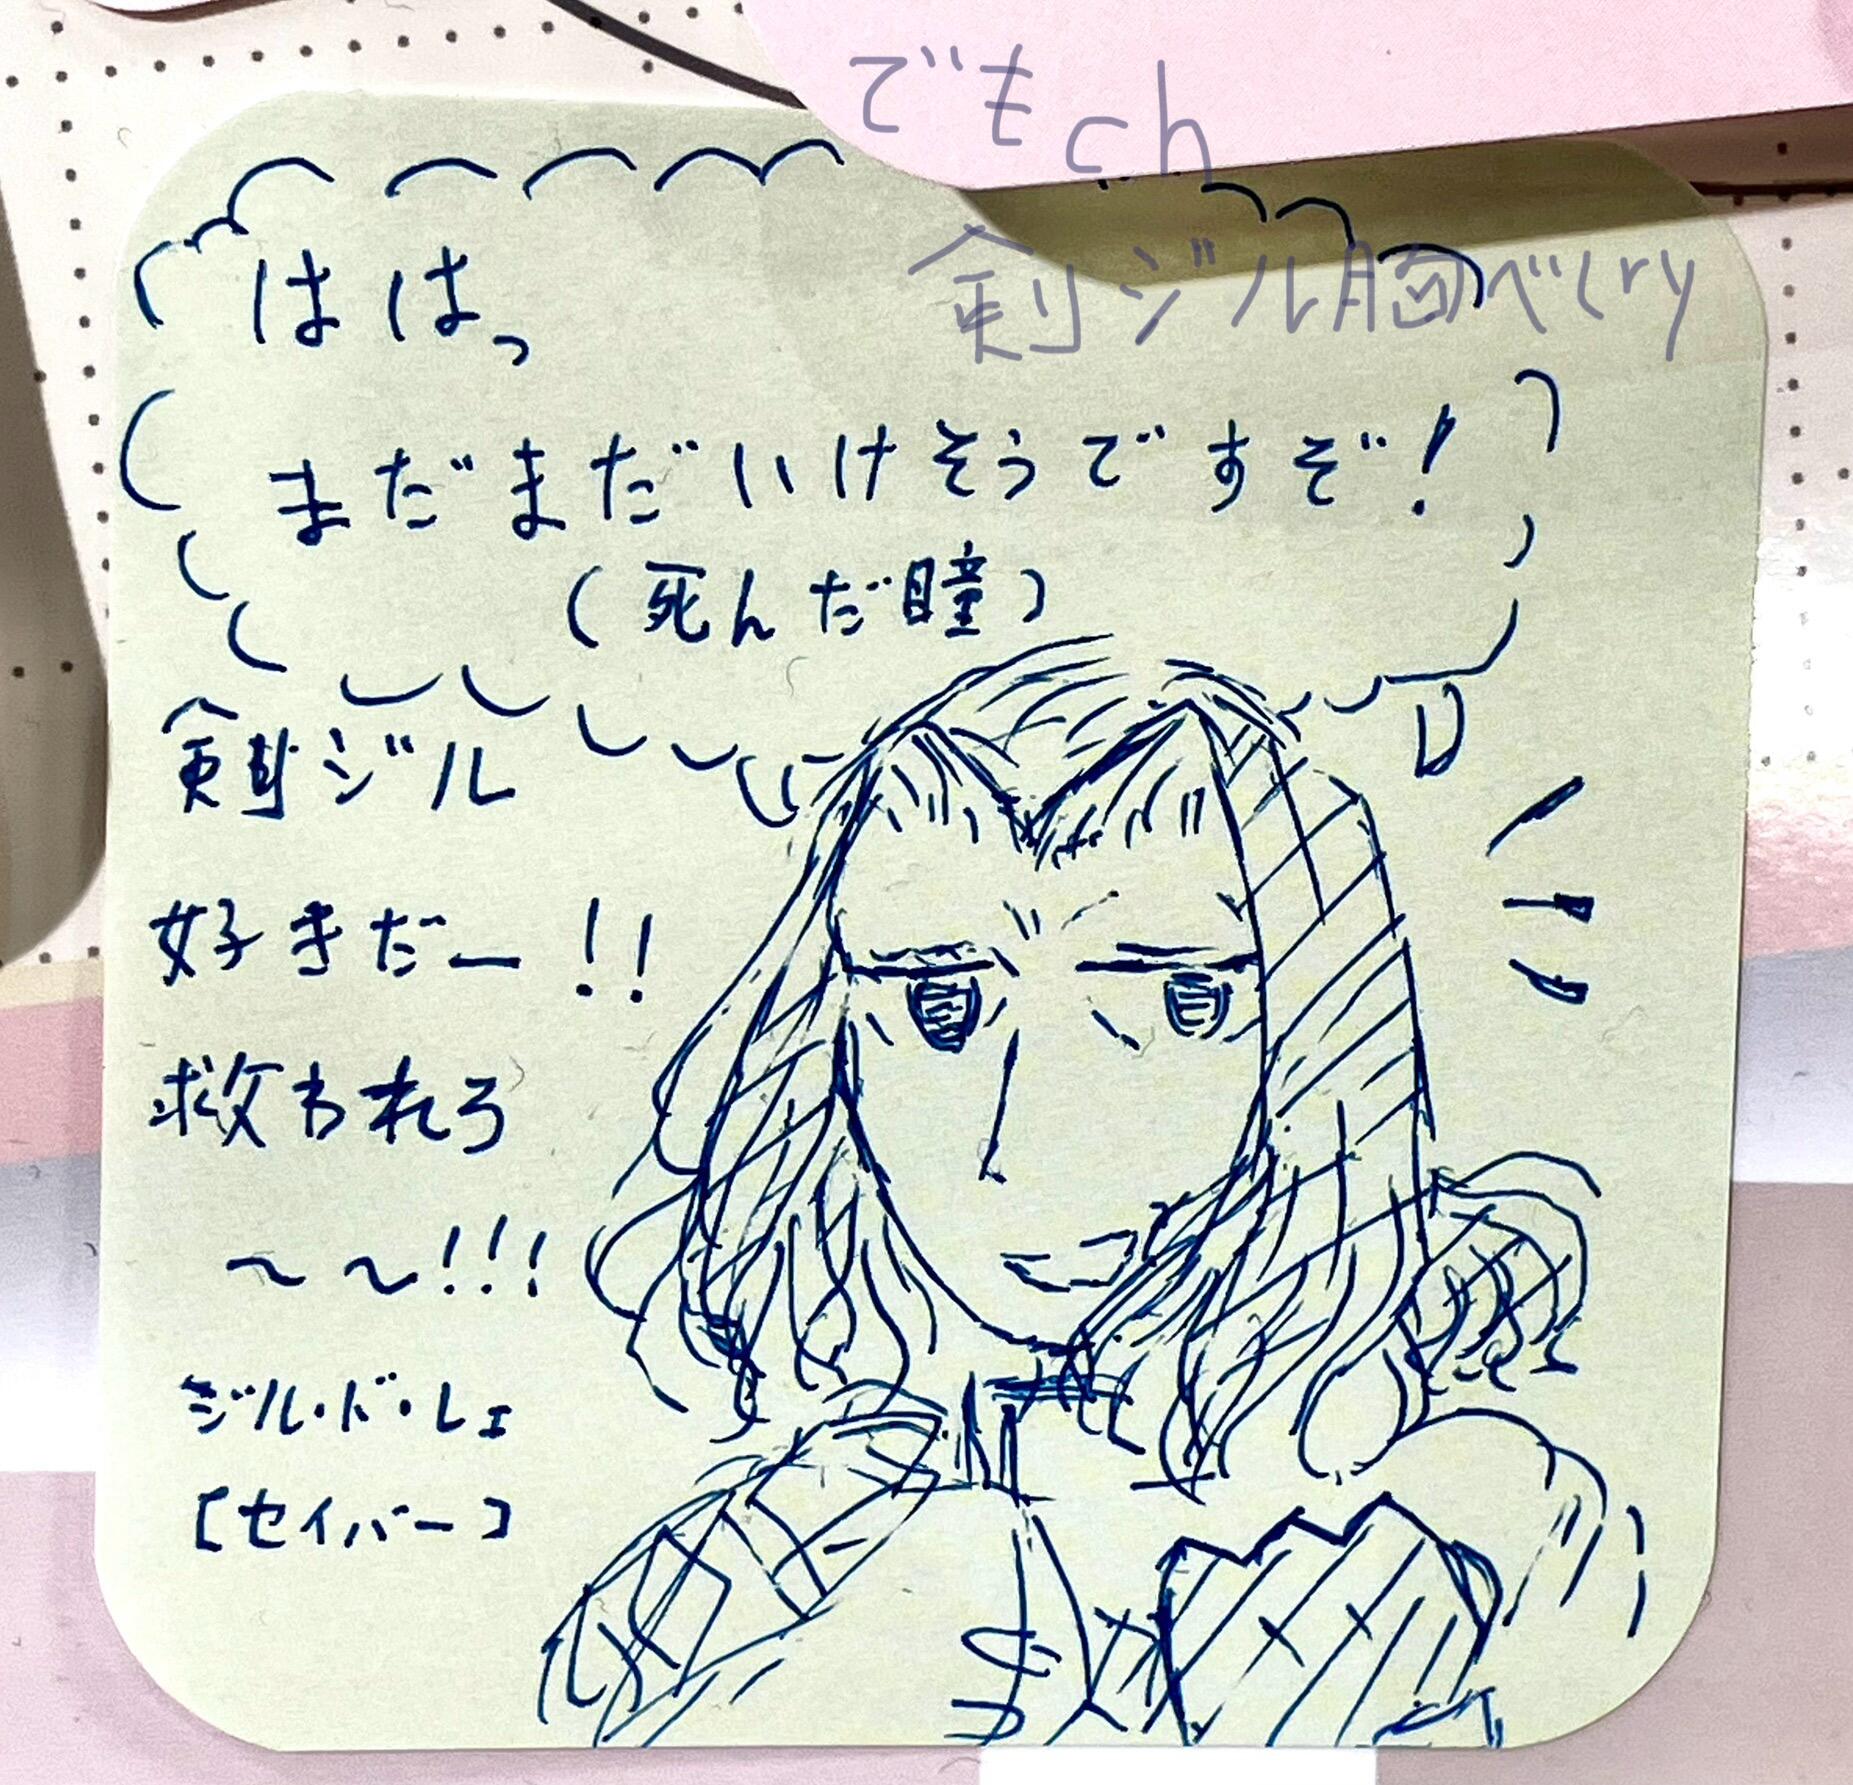 でもch
剣ジル胸べcry
ははっ
まだまだいけそうですぞ!
(死んだ瞳)
剣ジル
好きだー!!
救われろ
~~!!!
ジル・ド・レェ
[セイバー]